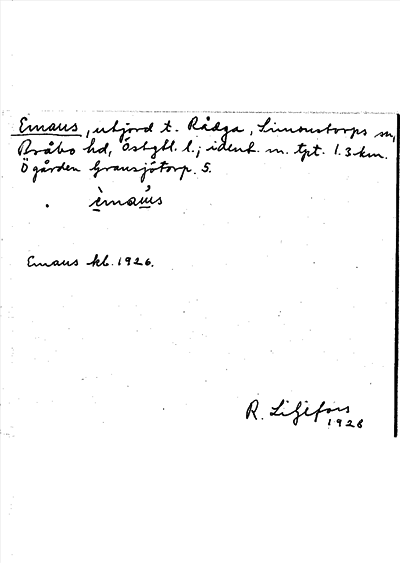 Emaus, utjord t. Rådga, Simonstorps sn,
Bråbo hd, Östgtl. l.; ident. m. tpt. 1.3 km.
Ö gården Gransjötorp. 5.
èmaús
Emaus kb. 1926.
R. Liljefors
1926